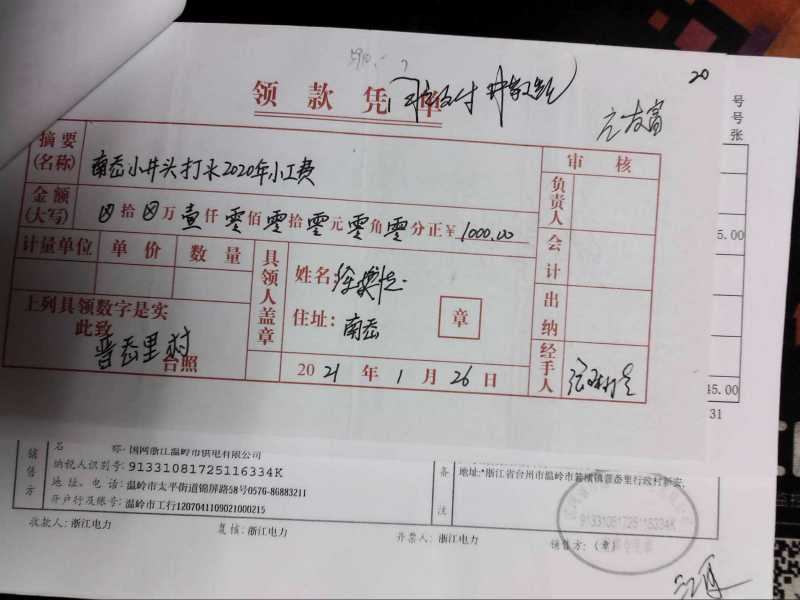 20
领款凭单
号
号
张
摘要
(名称)
南岙小井头打水2020年小工费
审核
金额
(大写)
⊗拾⊗万壹仟零佰零拾零元零角零分正¥1000.00
负责人
5.00
计量单位 单价 数量
具领人盖章
姓名:
会计
住址:南岙
章
出纳
上列具领数字是实
此致
晋岙里村
台照
2021年1月26日
经手人
45.00
31
销售方
名 称:国网浙江温岭市供电有限公司
纳税人识别号:91331081725116334K
地址、电话:温岭市太平街道锦屏路58号0576-86883211
开户行及账号:温岭市工行1207041109021000215
备注
地址:*浙江省台州市温岭市箬横镇晋岙里行政村新安,
91331081725116334K
收款人:浙江电力
复核:浙江电力
开票人:浙江电力
销售方:(章)